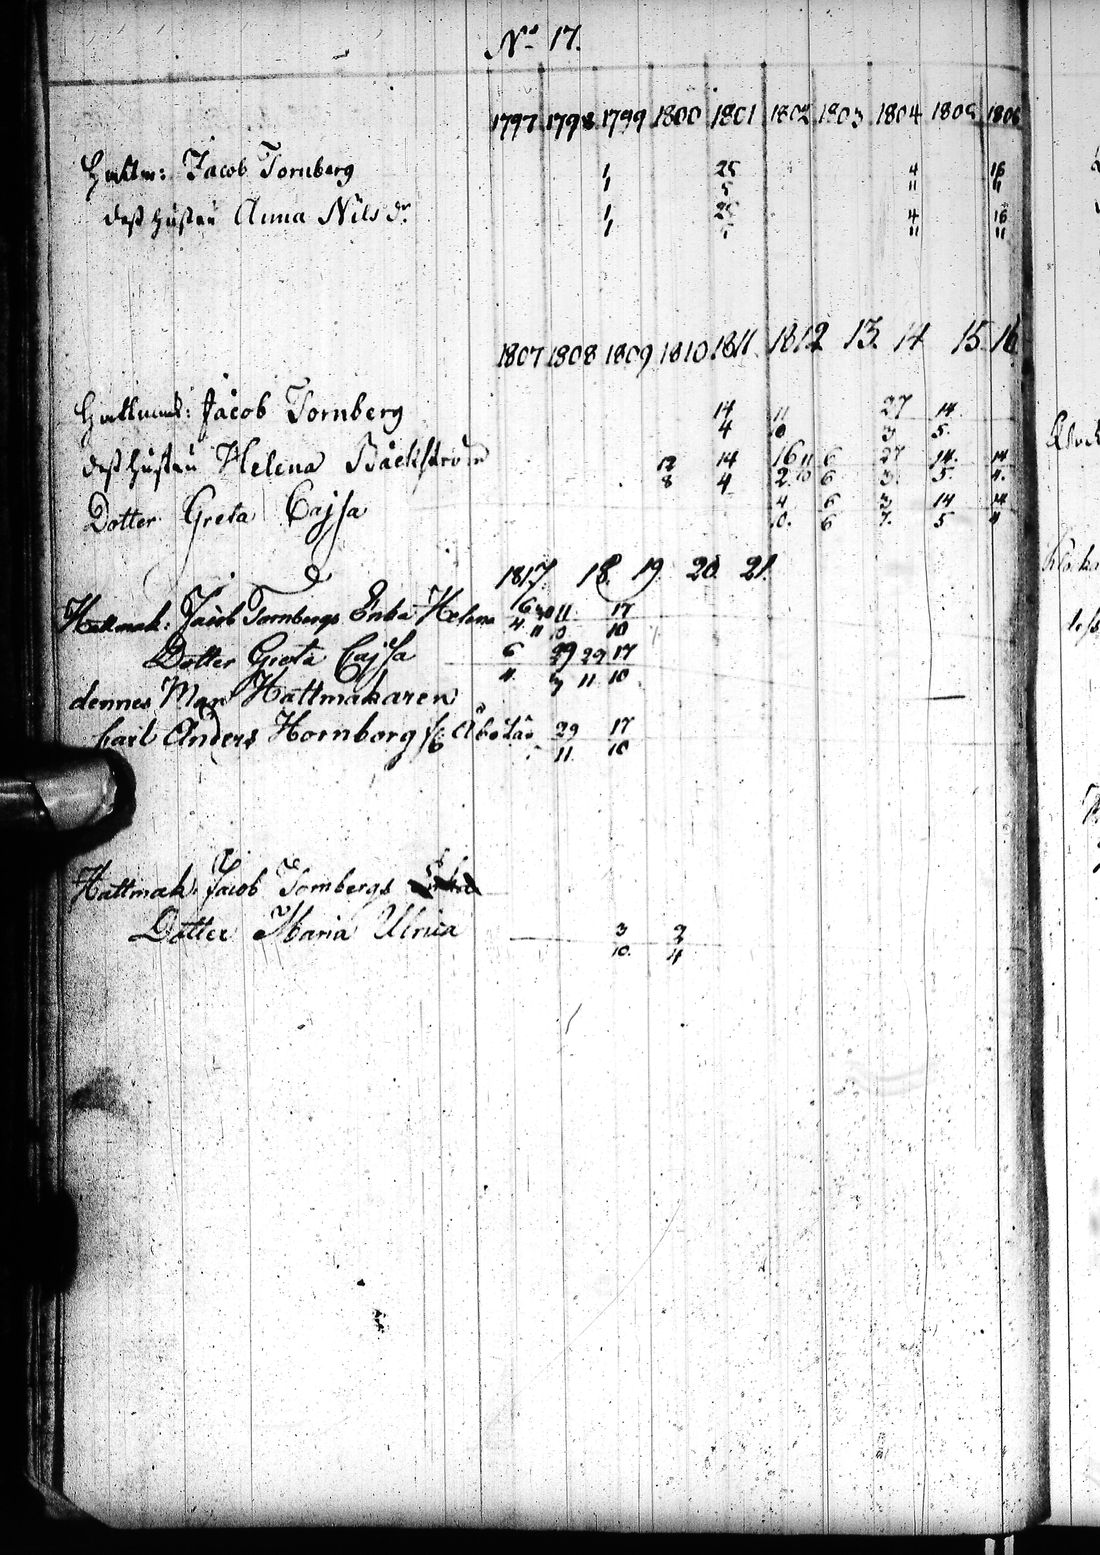 No 17.
1797 1798 1799 1800 1801 1802 1803 1804 1805 1806
Hattm: Jacob Tornberg 1/1 25/5 4/11 16/11
dess hustru Anna Nils dr 1/1 25/5 4/11 16/11
1807 1808 1809 1810 1811 1812 13. 14 15. 16
Hattmak: Jacob Tornberg 14/4 11/10 27/3 14/5.
dess hustru Helena Bäckström 12/8 14/4 16/2 11/10 6/6 27/3. 14./5. 14/4.
Dotter Greta Cajsa 4/10. 6/6 3/7. 14/5 14/4
1817. 18. 19. 20. 21.
Hattmak: Jacob Tornbergs Enka Helena 6/4 11/10 17/10
Dotter Greta Cajsa 6/4 29/9 29/11 17/10
dennes Man Hattmakaren
Carl Anders Hornborg 29/11 17/10
Hattmak: Jacob Tornbergs
Dotter Maria Ulrica 3/10. 2/4